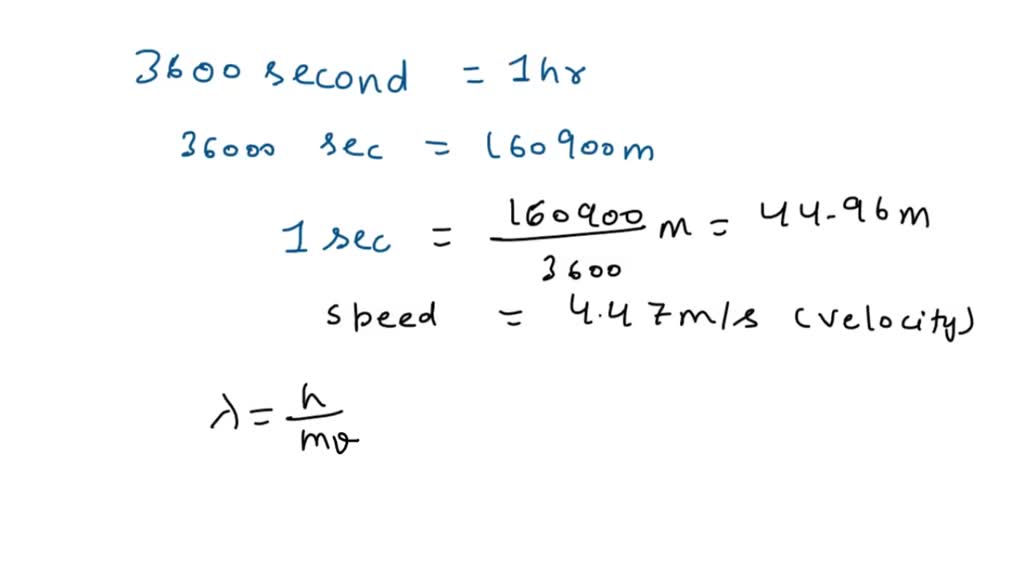 3600 second = 1 hr
36000 sec = 160900m
1 sec = 160900/3600 m = 44.96m
speed = 4.47m/s (velocity)
λ = h/mv